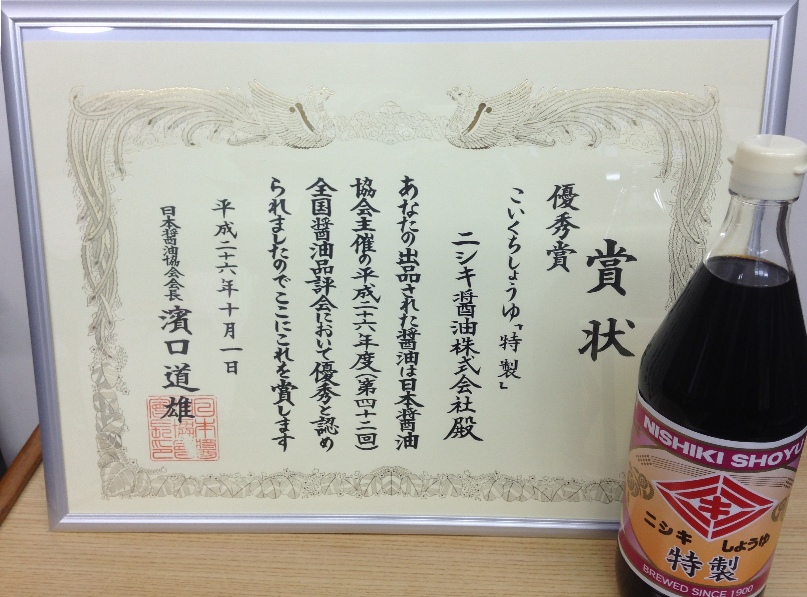 賞状
優秀賞
こいくちしょうゆ「特製」
ニシキ醤油株式会社殿
あなたの出品された醤油は日本醤油
協会主催の平成二十六年度(第四十二回)
全国醤油品評会において優秀と認め
られましたのでここにこれを賞します
平成二十六年十月一日
日本醤油協会会長 濱口道雄
NISHIKI SHOYU
キ
ニシキ しょうゆ
特製
BREWED SINCE 1900